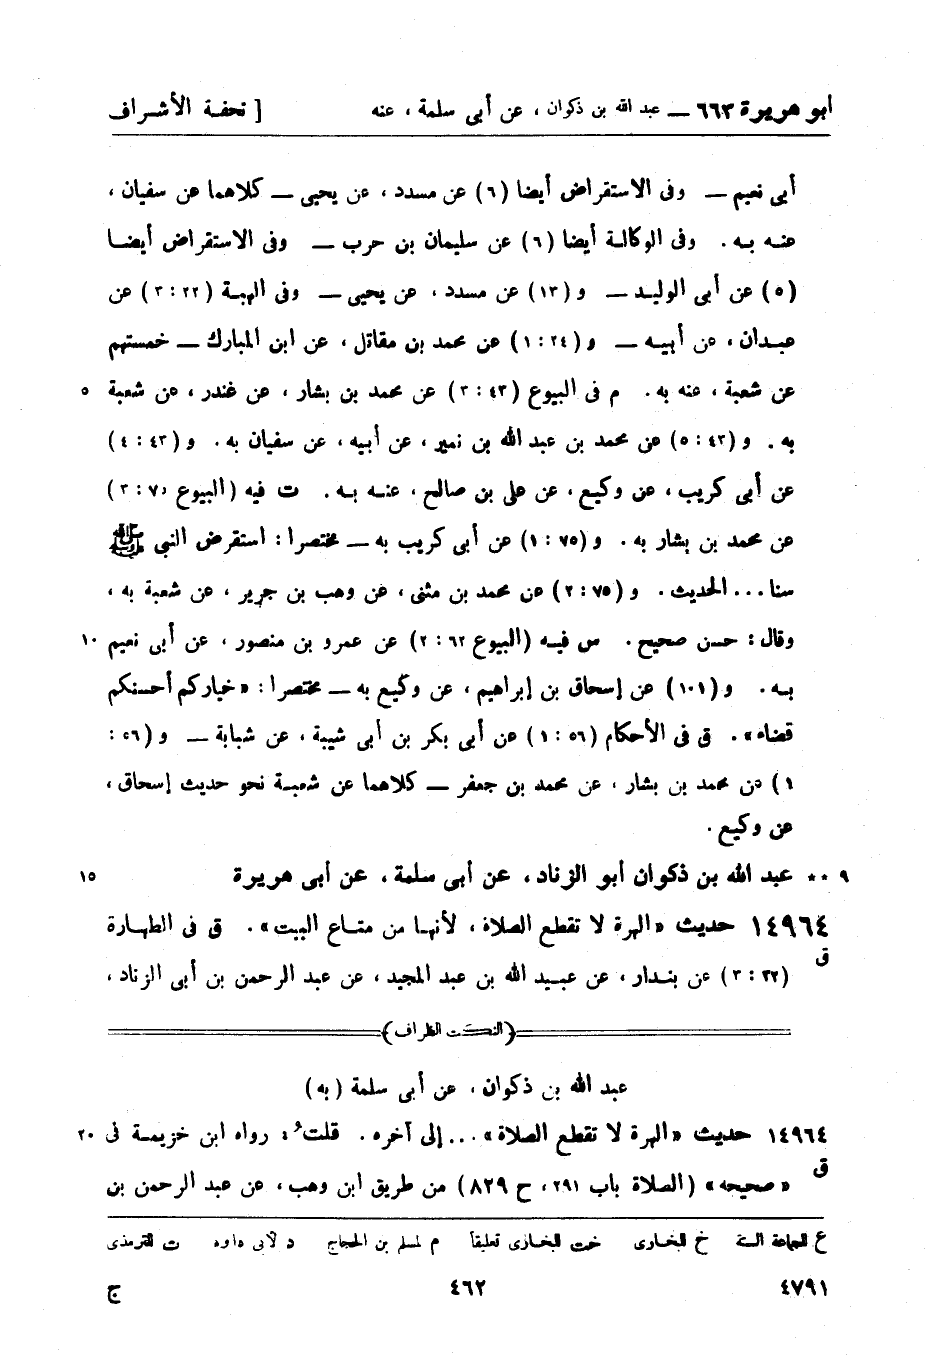 أبو هريرة ٦٦٣ — عبد الله بن ذكوان ، عن أبي سلمة ، عنه [ تحفة الأشراف
أبي نعيم — وفى الاستقراض أيضا (٦) عن مسدد ، عن يحيى — كلاهما عن سفيان ،
عنه به . وفى الوكالة أيضا (٦) عن سليمان بن حرب — وفى الاستقراض أيضا
(٥) عن أبى الوليد — و (١٣) عن مسدد ، عن يحيى — وفى الهبة (٢٢ : ٣) عن
عبدان ، عن أبيه — و (٢٤ : ١) عن محمد بن مقاتل ، عن ابن المبارك — خمستهم
عن شعبة ، عنه به . م فى البيوع (٤٣ : ٣) عن محمد بن بشار ، عن غندر ، عن شعبة ٥
به . و (٤٣ : ٥) عن محمد بن عبد الله بن نمير ، عن أبيه ، عن سفيان به . و (٤٣ : ٤)
عن أبى كريب ، عن وكيع ، عن على بن صالح ، عنه به . ت فيه (البيوع ٧٥ : ٣)
عن محمد بن بشار به . و (٧٥ : ١) عن أبى كريب به — مختصرا : استقرض النبي ﷺ
سنا ... الحديث . و (٧٥ : ٢) عن محمد بن مثنى ، عن وهب بن جرير ، عن شعبة به ،
وقال : حسن صحيح . س فيه (البيوع ٦٢ : ٢) عن عمرو بن منصور ، عن أبى نعيم ١٠
به . و (١٠١) عن إسحاق بن إبراهيم ، عن وكيع به — مختصرا : «خياركم أحسنكم
قضاء» . ق فى الأحكام (٥٦ : ١) عن أبى بكر بن أبى شيبة ، عن شبابة — و (٥٦ :
١) عن محمد بن بشار ، عن محمد بن جعفر — كلاهما عن شعبة نحو حديث إسحاق ،
عن وكيع .
٩ ** عبد الله بن ذكوان أبو الزناد ، عن أبى سلمة ، عن أبى هريرة ١٥
١٤٩٦٤ حديث «الهرة لا تقطع الصلاة ، لأنها من متاع البيت» . ق فى الطهارة
ق (٣٢ : ٣) عن بندار ، عن عبيد الله بن عبد المجيد ، عن عبد الرحمن بن أبى الزناد ،
(النكت الظراف)
عبد الله بن ذكوان ، عن أبى سلمة (به)
١٤٩٦٤ حديث «الهرة لا تقطع الصلاة» ... إلى آخره . قلتُ : رواه ابن خزيمة فى ٢٠
ق «صحيحه» (الصلاة باب ٢٩١ ، ح ٨٢٩) من طريق ابن وهب ، عن عبد الرحمن بن
ع للجماعة الستة خ للبخارى خت للبخارى تعليقا م لمسلم بن الحجاج د لأبى داود ت للترمذى
٤٧٩١ ٤٦٢ ج